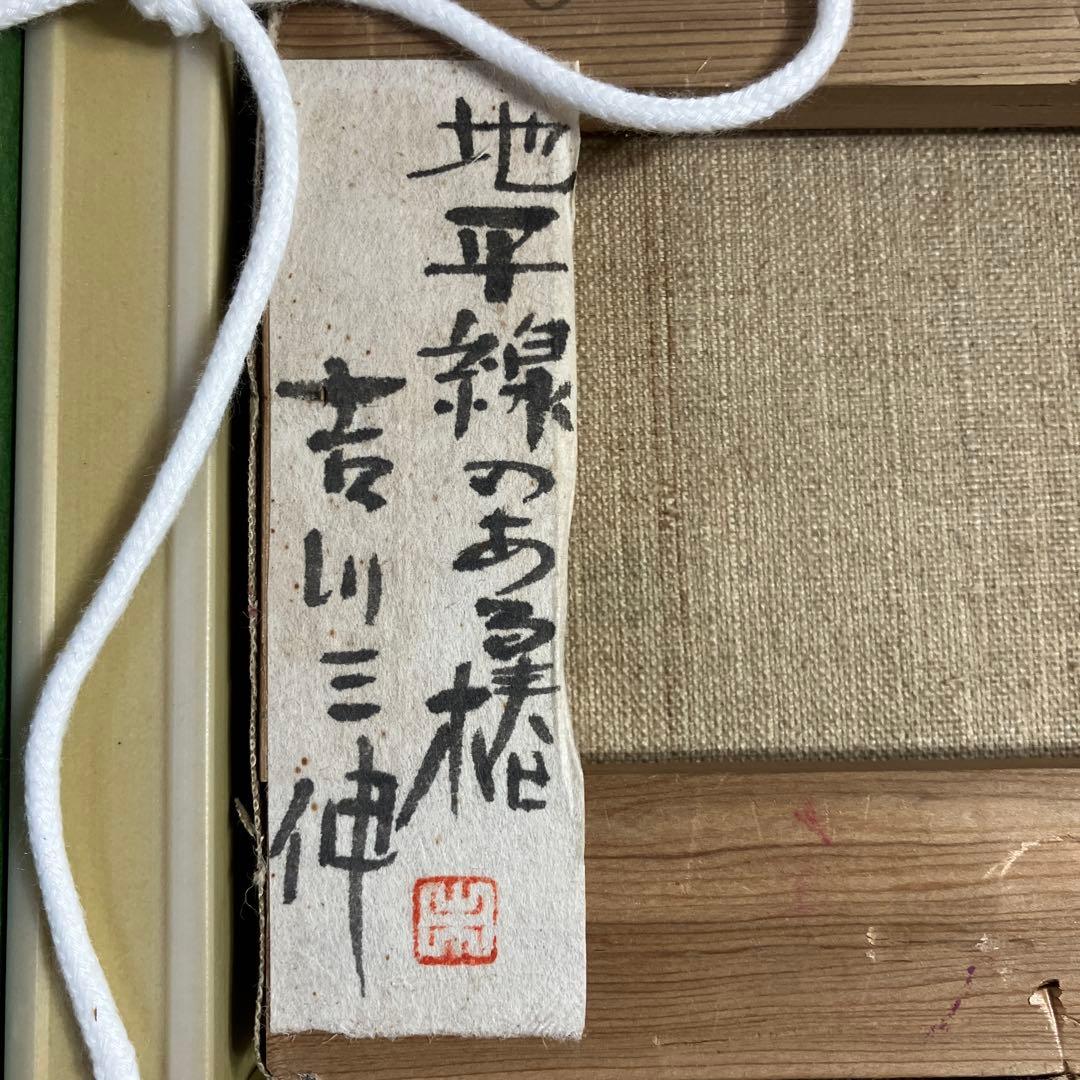 地平線のある椿
吉川三伸